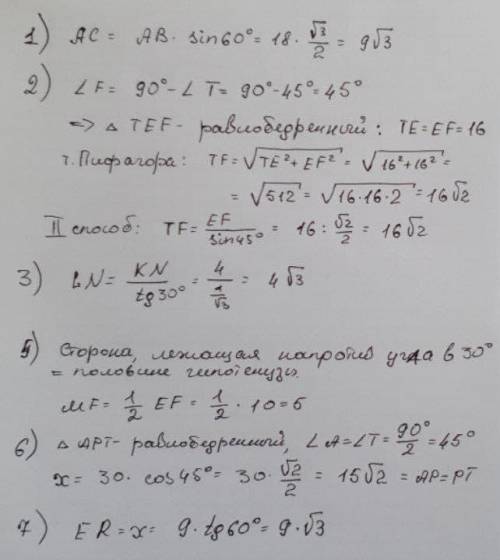 1) AC = AB · sin60° = 18 · √3/2 = 9√3
2) ∠F = 90° - ∠T = 90° - 45° = 45°
=> △ TEF - равнобедренный : TE = EF = 16
т. Пифагора: TF = √(TE² + EF²) = √(16² + 16²) =
= √512 = √(16·16·2) = 16√2
II способ: TF = EF/sin45° = 16 : √2/2 = 16√2
3) LN = KN/tg30° = 4/(1/√3) = 4√3
5) Сторона, лежащая напротив угла в 30°
= половине гипотенузы.
MF = 1/2 EF = 1/2 · 10 = 5
6) △ APT - равнобедренный, ∠A = ∠T = 90°/2 = 45°
x = 30 · cos45° = 30 · √2/2 = 15√2 = AP = PT
7) ER = x = 9 · tg60° = 9 · √3